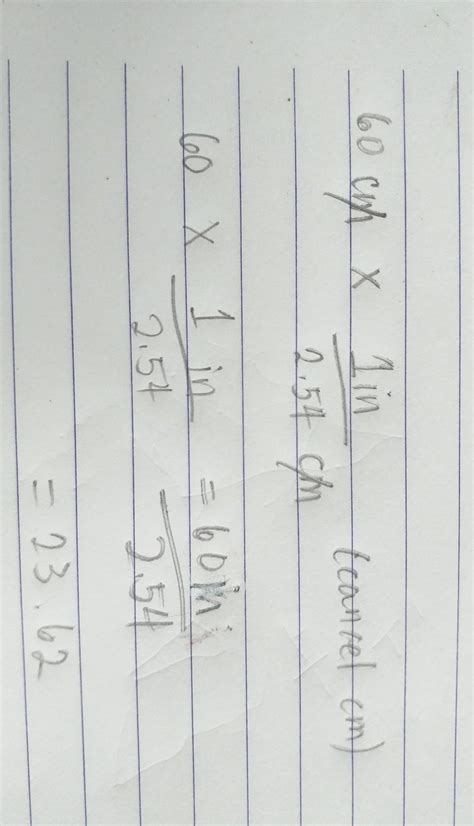 60 cm x 1 in / 2.54 cm (cancel cm)
60 x 1 in / 2.54 = 60 in / 2.54
= 23.62